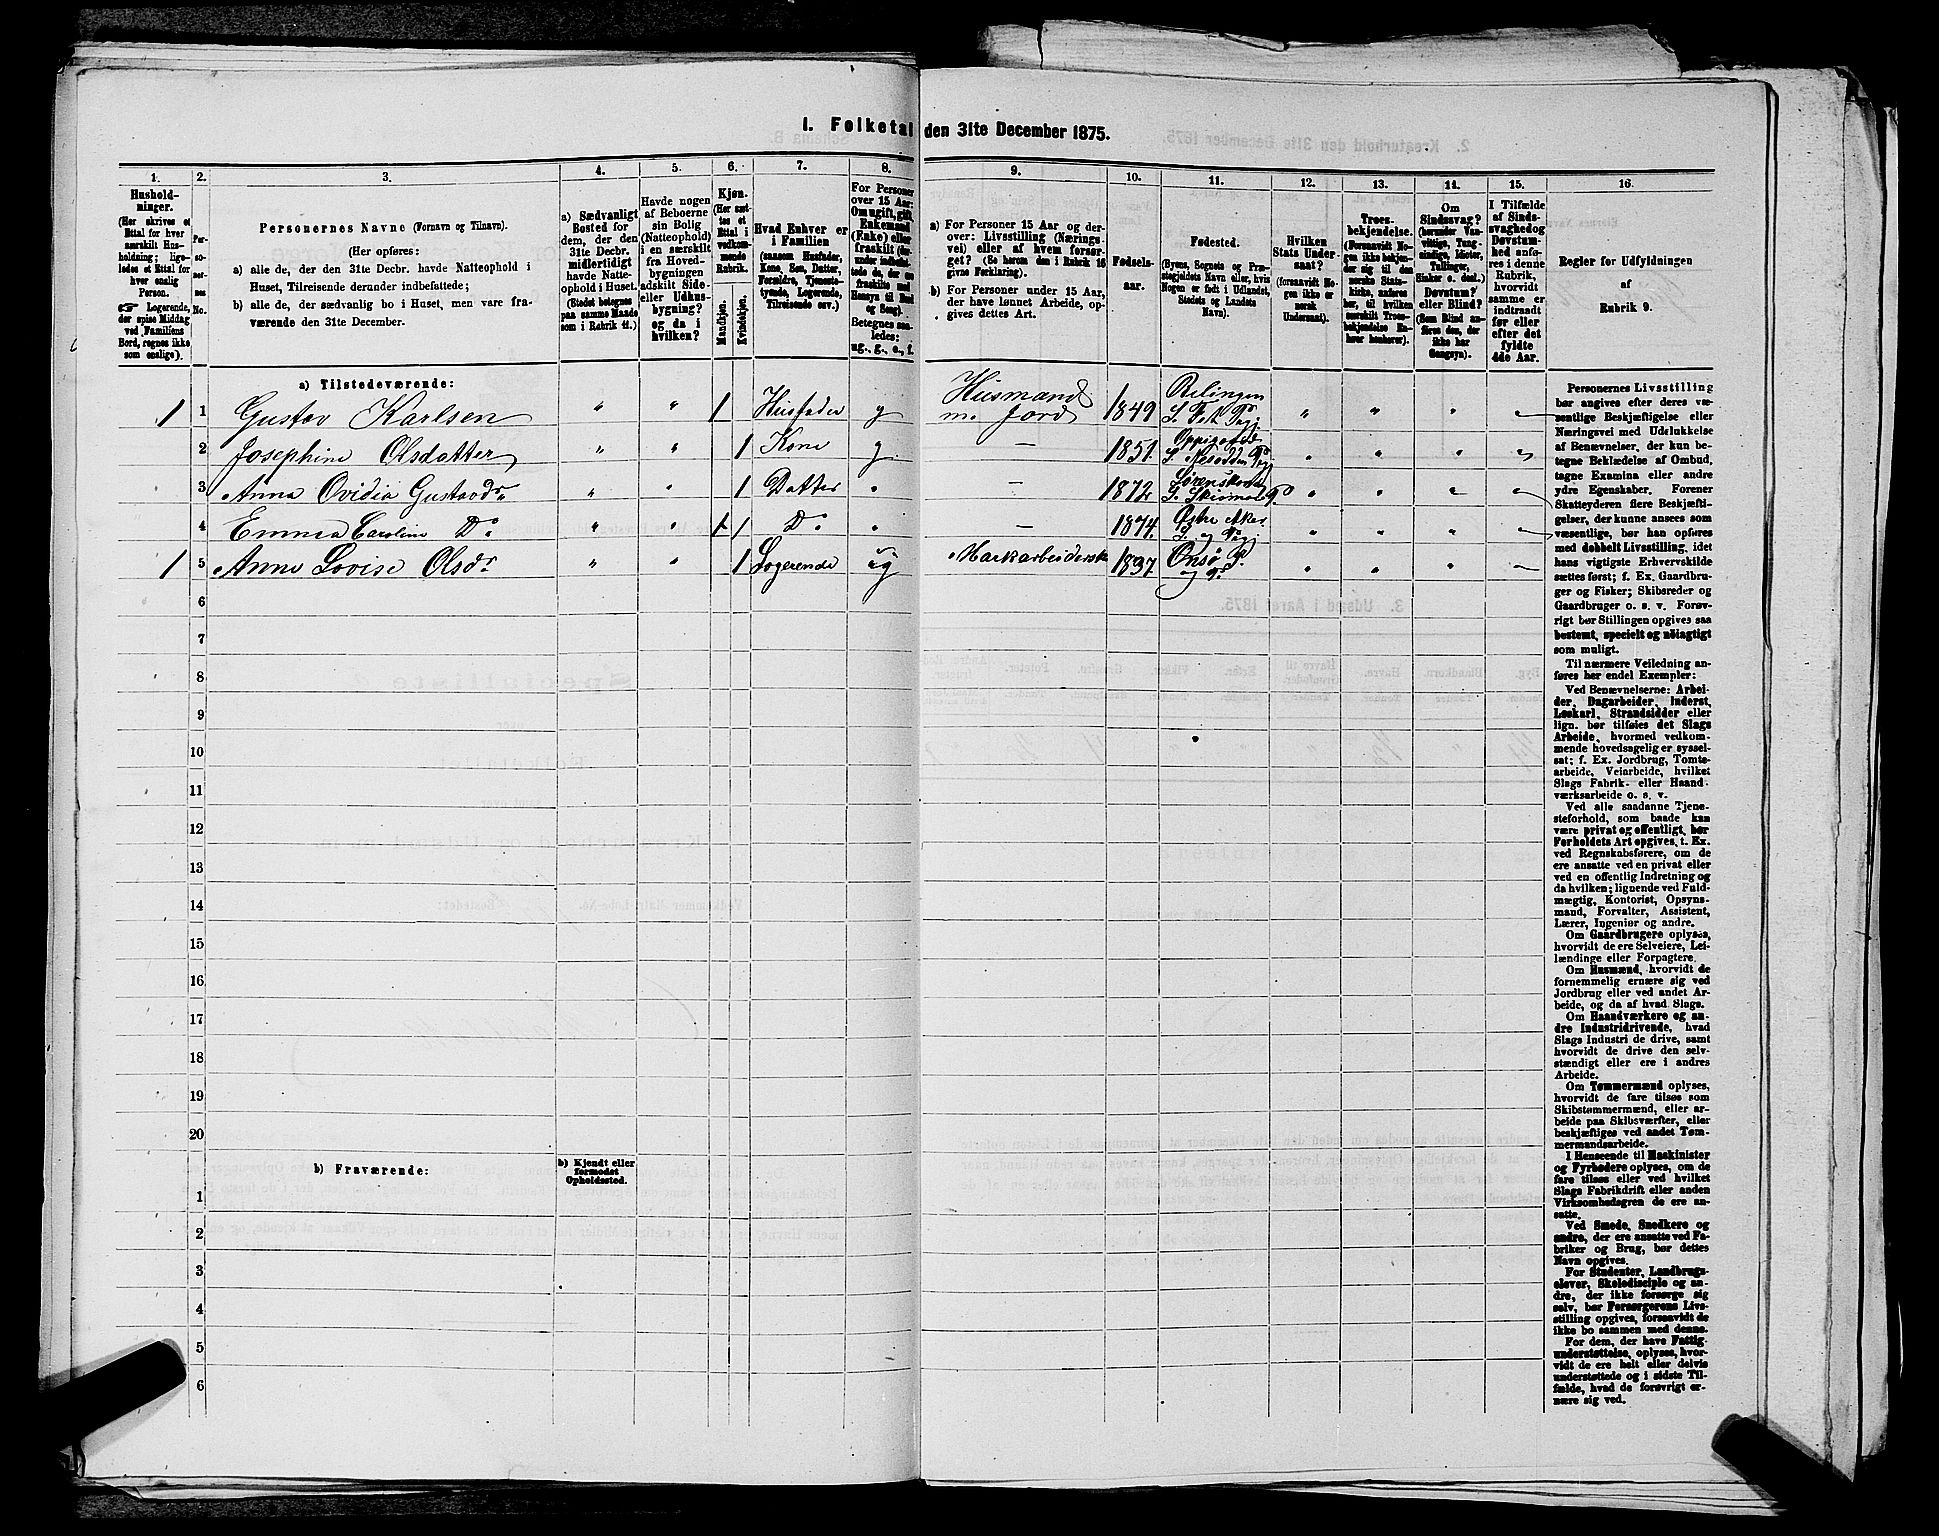 I. Folketal den 31te December 1875.
1. 2. 3. 4. 5. 6. 7. 8. 9. 10. 11. 12. 13. 14. 15. 16.
Hushold-
ninger.
(Her skrives et
Ettal for hver
særskilt Hus-
holdning; lige-
ledes et Ettal for
hver enslig
Person.
☞ Logerende,
der spise Middag
ved Familiens
Bord, regnes ikke
som enslige).
Per-
so-
ner-
nes
No.
Personernes Navne (Fornavn og Tilnavn).
(Her opføres:
a) alle de, der den 31te Decbr. havde Natteophold i
Huset, Tilreisende derunder indbefattede;
b) alle de, der sædvanlig bo i Huset, men vare fra-
værende den 31te December.
a) Sædvanligt
Bosted for
dem, der den
31te Decbr.
midlertidigt
havde Natte-
ophold i Huset.
(Stedet betegnes
paa samme Maade
som i Rubrik 11.)
Havde nogen
af Beboerne
sin Bolig
(Natteophold)
i en særskilt
fra Hoved-
bygningen
adskilt Side-
eller Udhus-
bygning?
og da i
hvilken?
Kjøn.
(Her sæt-
tes et
Ettal i
vedkom-
mende
Rubrik.
Mandkjøn.
Kvindekjøn.
Hvad Enhver er
i Familien
(saasom Husfader,
Kone, Søn, Datter,
Forældre, Tjeneste-
tyende, Logerende,
Tilreisende osv.)
For Personer
over 15 Aar:
Om ugift, gift,
Enkemand
(Enke) eller
fraskilt
Betegnes saa-
ledes:
ug., g., e., f.
a) For Personer 15 Aar og der-
over: Livsstilling (Nærings-
vei) eller af hvem forsør-
get? (Se herom den i Rubrik 16
givne Forklaring).
b) For Personer under 15 Aar,
der have lønnet Arbeide, op-
gives dettes Art.
Fødsels-
aar.
Fødested.
(Byens, Sognets og Præ-
stegjeldets Navn eller, hvis
Nogen er født i Udlandet,
Stedets og Landets
Navn).
Hvilken
Stats Under-
saat?
(forsaavidt No-
gen ikke er
norsk
Undersaat).
Troes-
bekjendelse.
(Forsaavidt No-
gen ikke bekjen-
der sig til den
norske Stats-
kirke, anføres
her, til hvilken
særskilt Troes-
bekjendelse En-
hver henhører).
Om
Sindssvag?
(herunder Van-
vittige, Tung-
sindige, Idioter,
Tullinger,
Sinker o. desl.).
Døvstum?
eller Blind?
(Som Blind an-
føres den, der
ikke har
Gangsyn).
I Tilfælde
af Sinds-
svaghed og
Døvstum-
hed anfø-
res i denne
Rubrik,
hvorvidt
samme er
indtraadt
før eller
efter det
fyldte
4de Aar.
Regler for Udfyldningen
af
Rubrik 9.
a) Tilstedeværende:
1 1 Gustav Karlsen " " 1 Husfader g Husmand m. Jord 1849 Relingen S. Fet Pgj. " " " "
2 Josephine Olsdatter " " 1 Kone g — 1851. Oppigaard S. Nesodden Pgj " " " "
3 Anna Ovidia Gustavdr " " 1 Datter " — 1872 S. " " " "
4 Emma Caroline Do " " 1 1 Do " — 1874. Østre Aker S. og Pgj " " " "
1 5 Anne Lovise Olsdr " " 1 Logerende ug Markarbeiderske 1837. Onsø S. og P. " " " "
6
7
8
9
10
11
12
13
14
15
16
17
18
19
20
b) Fraværende:
b) Kjendt eller
formodet
Opholdssted.
1
2
3
4
5
6
Personernes Livsstilling
bør angives efter deres væ-
sentlige Beskjæftigelse eller
Næringsvei med Udelukkelse
af Benævnelser, der kun be-
tegne Beklædelse af Ombud,
tagne Examina eller andre
ydre Egenskaber. Forener
Skatteyderen flere Beskjæfti-
gelser, der kunne ansees som
væsentlige, bør han opføres
med dobbelt Livsstilling, idet
hans vigtigste Erhvervskilde
sættes først; f. Ex. Gaardbru-
ger og Fisker; Skibsreder og
Gaardbruger o. s. v. Forøv-
rigt bør Stillingen opgives saa
bestemt, specielt og nøiagtigt
som muligt.
Til nærmere Veiledning an-
føres her endel Exempler:
Ved Benævnelserne: Arbei-
der, Dagarbeider, Inderst,
Løskarl, Strandsidder eller
lign. bør tilføies det Slags
Arbeide, hvormed vedkom-
mende hovedsagelig er syssel-
sat; f. Ex. Jordbrug, Tomte-
arbeide, Veiarbeide, hvilket
Slags Fabrik- eller Haand-
værksarbeide o. s. v.
Ved alle saadanne Tjene-
steforhold, som baade kan
være privat og offentligt, bør
Forholdets Art opgives, t. Ex.
ved Regnskabsførere, om de
ere ansatte ved en privat eller
ved en offentlig Indretning og
da hvilken; lignende ved Fuld-
mægtig, Kontorist, Opsyns-
mand, Forvalter, Assistent,
Lærer, Ingeniør og andre.
Om Gaardbrugere oplyses,
hvorvidt de ere Selveiere, Lei-
lændinge eller Forpagtere.
Om Husmænd, hvorvidt de
fornemmelig ernære sig ved
Jordbrug eller ved andet Ar-
beide, og da af hvad Slags.
Om Haandværkere og an-
dre Industridrivende, hvad
Slags Industri de drive, samt
hvorvidt de drive den selv-
stændigt eller ere i andres
Arbeide.
Om Tømmermænd oplyses,
hvorvidt de fare tilsøs som
Skibstømmermænd, eller ar-
beide paa Skibsværfter, eller
beskjæftiges ved andet Tøm-
mermandsarbeide.
I Henseende til Maskinister
og Fyrbødere oplyses, om de
fare tilsøs eller ved hvilket
Slags Fabrikdrift eller anden
Virksomhedsgren de ere an-
satte.
Ved Smede, Snedkere og
andre, der ere ansatte ved Fa-
briker og Brug, bør dettes
Navn opgives.
For Studenter, Landbrugs-
elever, Skoledisciple og an-
dre, der ikke forsørge sig
selv, bør Forsørgerens Livs-
stilling opgives, forsaavidt de
ikke bo sammen med denne.
For dem, der have Fattig-
understøttelse, oplyses, hvor-
vidt de ere helt eller delvis
understøttede og i sidste Til-
fælde, hvad de forøvrigt er-
nære sig ved.